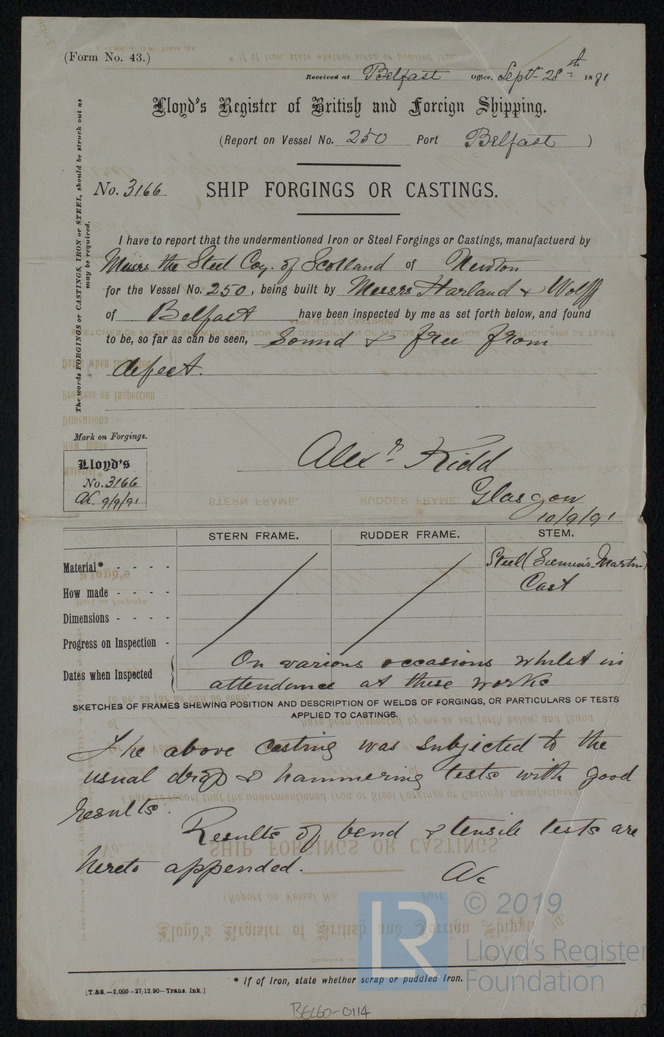 (Form No. 43.)
* If of Iron, state whether scrap or puddled Iron.
Received at Belfast Office, Sept 28th 1891
Lloyd's Register of British and Foreign Shipping.
(Report on Vessel No. 250 Port Belfast )
No. 3166 SHIP FORGINGS OR CASTINGS.
The words FORGINGS or CASTINGS, IRON or STEEL, should be struck out as
may be required.
I have to report that the undermentioned Iron or Steel Forgings or Castings, manufactuerd by
Messrs the Steel Coy. of Scotland of Newton
for the Vessel No. 250, being built by Messrs Harland & Wolff
of Belfast have been inspected by me as set forth below, and found
to be, so far as can be seen, Sound & free from
defect.
Mark on Forgings.
Lloyd's
No. 3166
AK 9/9/91
Alexr Kidd
Glasgow
10/9/91
STERN FRAME. RUDDER FRAME. STEM.
Material* - - - - Steel (Siemens-Martin)
How made - - - - Cast
Dimensions - - - -
Progress on Inspection -
Dates when Inspected { On various occasions whilst in
attendance at these works
SKETCHES OF FRAMES SHEWING POSITION AND DESCRIPTION OF WELDS OF FORGINGS, OR PARTICULARS OF TESTS
APPLIED TO CASTINGS.
The above casting was subjected to the
usual drop & hammering tests with good
results.
Results of bend & tensile tests are
hereto appended.
* If of Iron, state whether scrap or puddled Iron.
[T.&S.—2,000—27.12.90—Trans. Ink.]
BEL60-0114
LR
© 2019
Lloyd's Register
Foundation